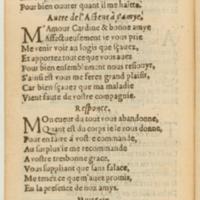 Pour bien ouurer quant il me haste.
Autre de l'Acteur à s'amye.
M'Amour Cardine & bonne amye
Affectueusement ie vous prie
Me venir voir au logis que sçauez,
Et apportez tout ce que vous auez
Pour bien ensemblement nous resouyr,
S'ainsi est vous me feres grand plaisir,
Car bien sçauez que ma maladie
Vient faute de vostre compagnie.
Responce.
Mon cueur du tout vous abandonne,
Quant est du corps ie le vous donne,
Pour en faire à vostre commande,
Au surplus ie me recommande
A vostre tresbonne grace.
Vous suppliant que sans falace,
Me tenez ce que m'auez promis,
Eu la presence de nos amys.